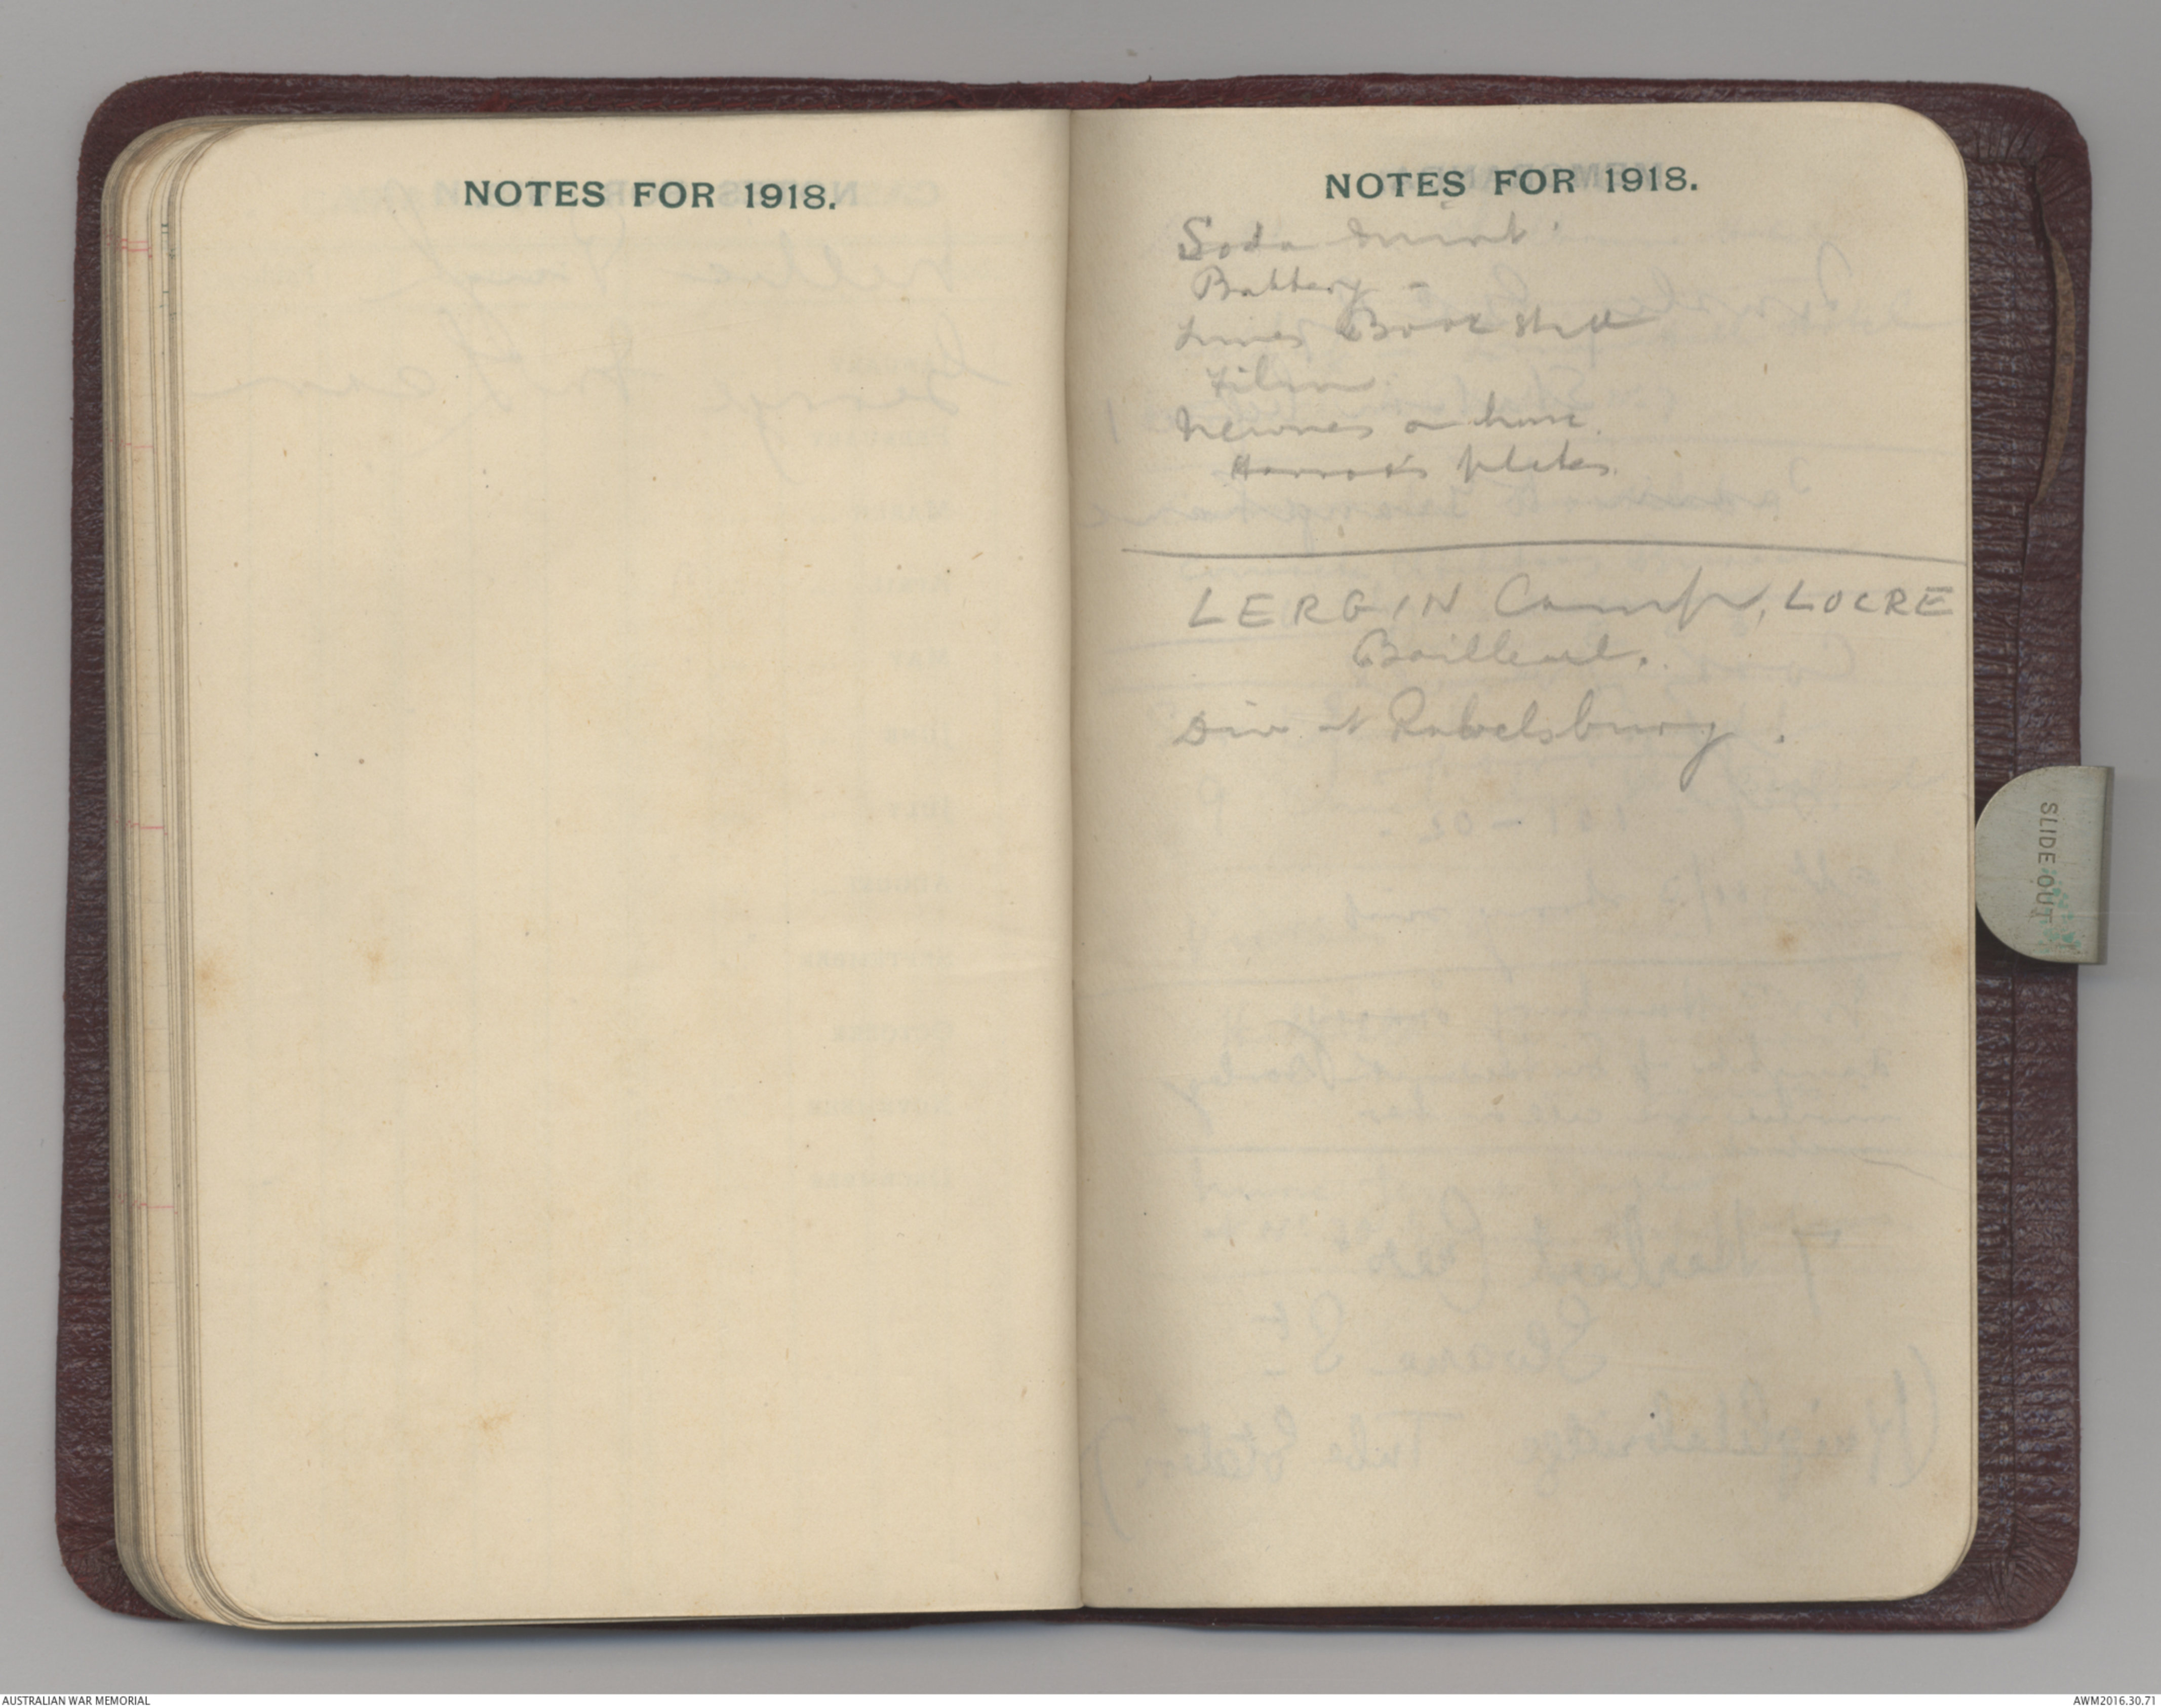 NOTES FOR 1918.
NOTES FOR 1918.
Soda mint.
Battery -
Times Book
Film.
Newnes at home.
Harrods plates.
LERGIN Camp, LOCRE
Bailleul.
Div at Ravelsburg.
SLIDE OUT
AUSTRALIAN WAR MEMORIAL
AWM2016.30.71